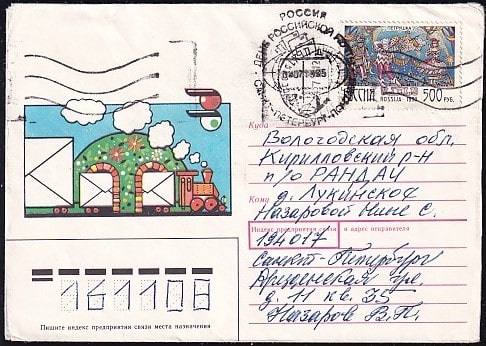 РОССИЯ
ДЕНЬ РОССИЙСКОЙ
САНКТ-ПЕТЕРБУРГ
ПЕТРУШКА
РОССИЯ ROSSIJA 1992 500 РУБ.
Куда Вологодская обл.
Кирилловский р-н
п/о РАНДАЧ
д. Лукинское
Кому
Назаровой Нине С.
Индекс предприятия связи и адрес отправителя
194017
Санкт-Петербург
Дрезденская
д. 11 кв. 35
Назаров В.П.
161108
Пишите индекс предприятия связи места назначения